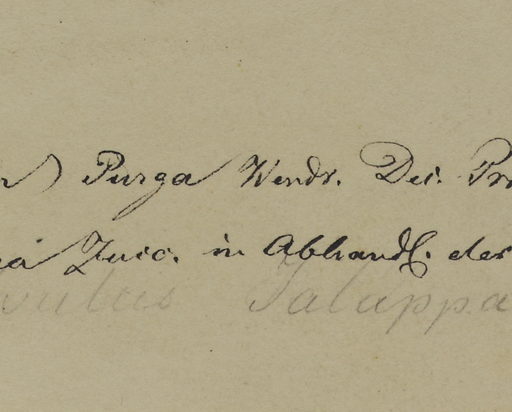 Purga Wendr. Dec. Pr
Zucc. in Abhandl. der
Jalappa